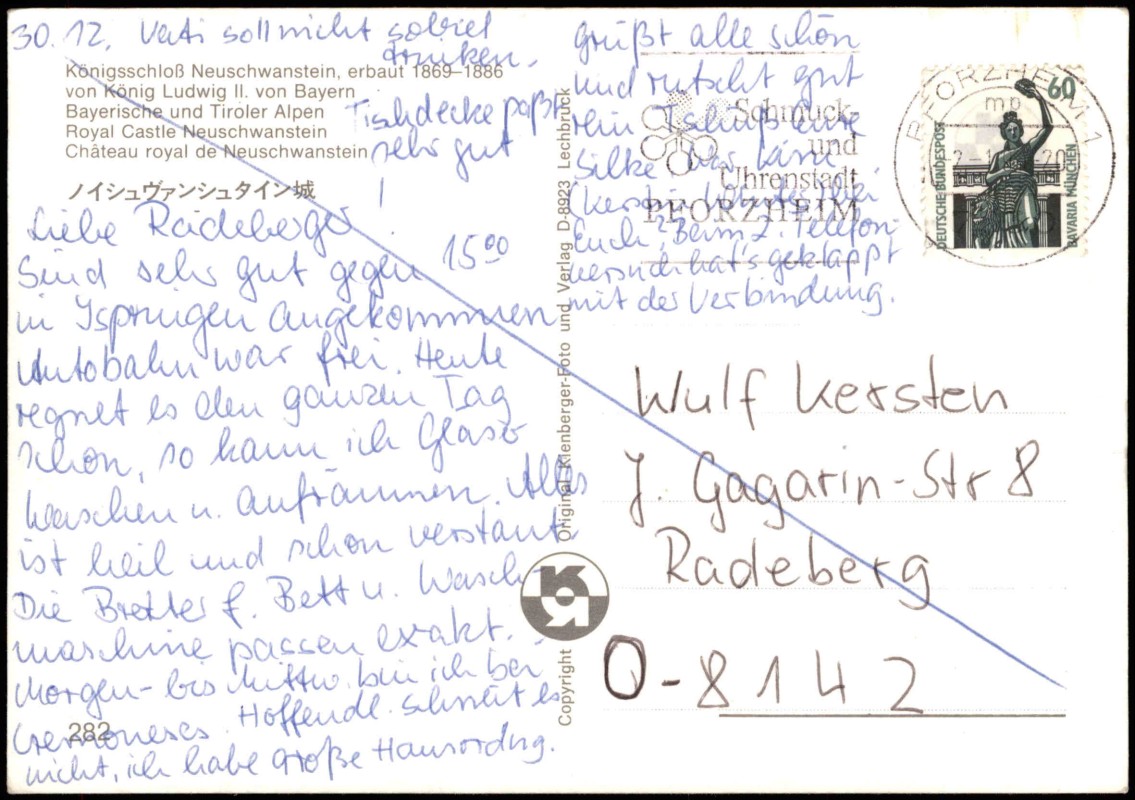 30.12. Vati soll nicht soviel
trinken.
Königsschloß Neuschwanstein, erbaut 1869–1886
von König Ludwig II. von Bayern
Bayerische und Tiroler Alpen
Royal Castle Neuschwanstein
Château royal de Neuschwanstein
ノイシュヴァンシュタイン城
Tischdecke paßt
sehr gut
!
Liebe Radeberger
Sind sehr gut gegen 15⁰⁰
in Ispringen angekommen
Autobahn war frei. Heute
regnet es den ganzen Tag
schon, so kann ich Glas
waschen u. aufräumen. Alles
ist heil und schon verstaut
Die Bretter f. Bett u. Wasch-
maschine passen exakt.
Morgen - bis Mittw. bin ich bei
Hoffendl. schneit es
nicht, ich habe große Hausordng.
282
grüßt alle schön
und rutscht gut
rein Tschüß eure
Silke
Kerstin
euch? Beim 2. Telefon
versuch hat's geklappt
mit der Verbindung.
Schmuck-
und
Uhrenstadt
PFORZHEIM
PFORZHEIM 1
mb
60
DEUTSCHE BUNDESPOST
BAVARIA MÜNCHEN
Copyright Original Kienberger-Foto und Verlag D-8923 Lechbruck
Wulf Kersten
J. Gagarin-Str 8
Radeberg
O-8142